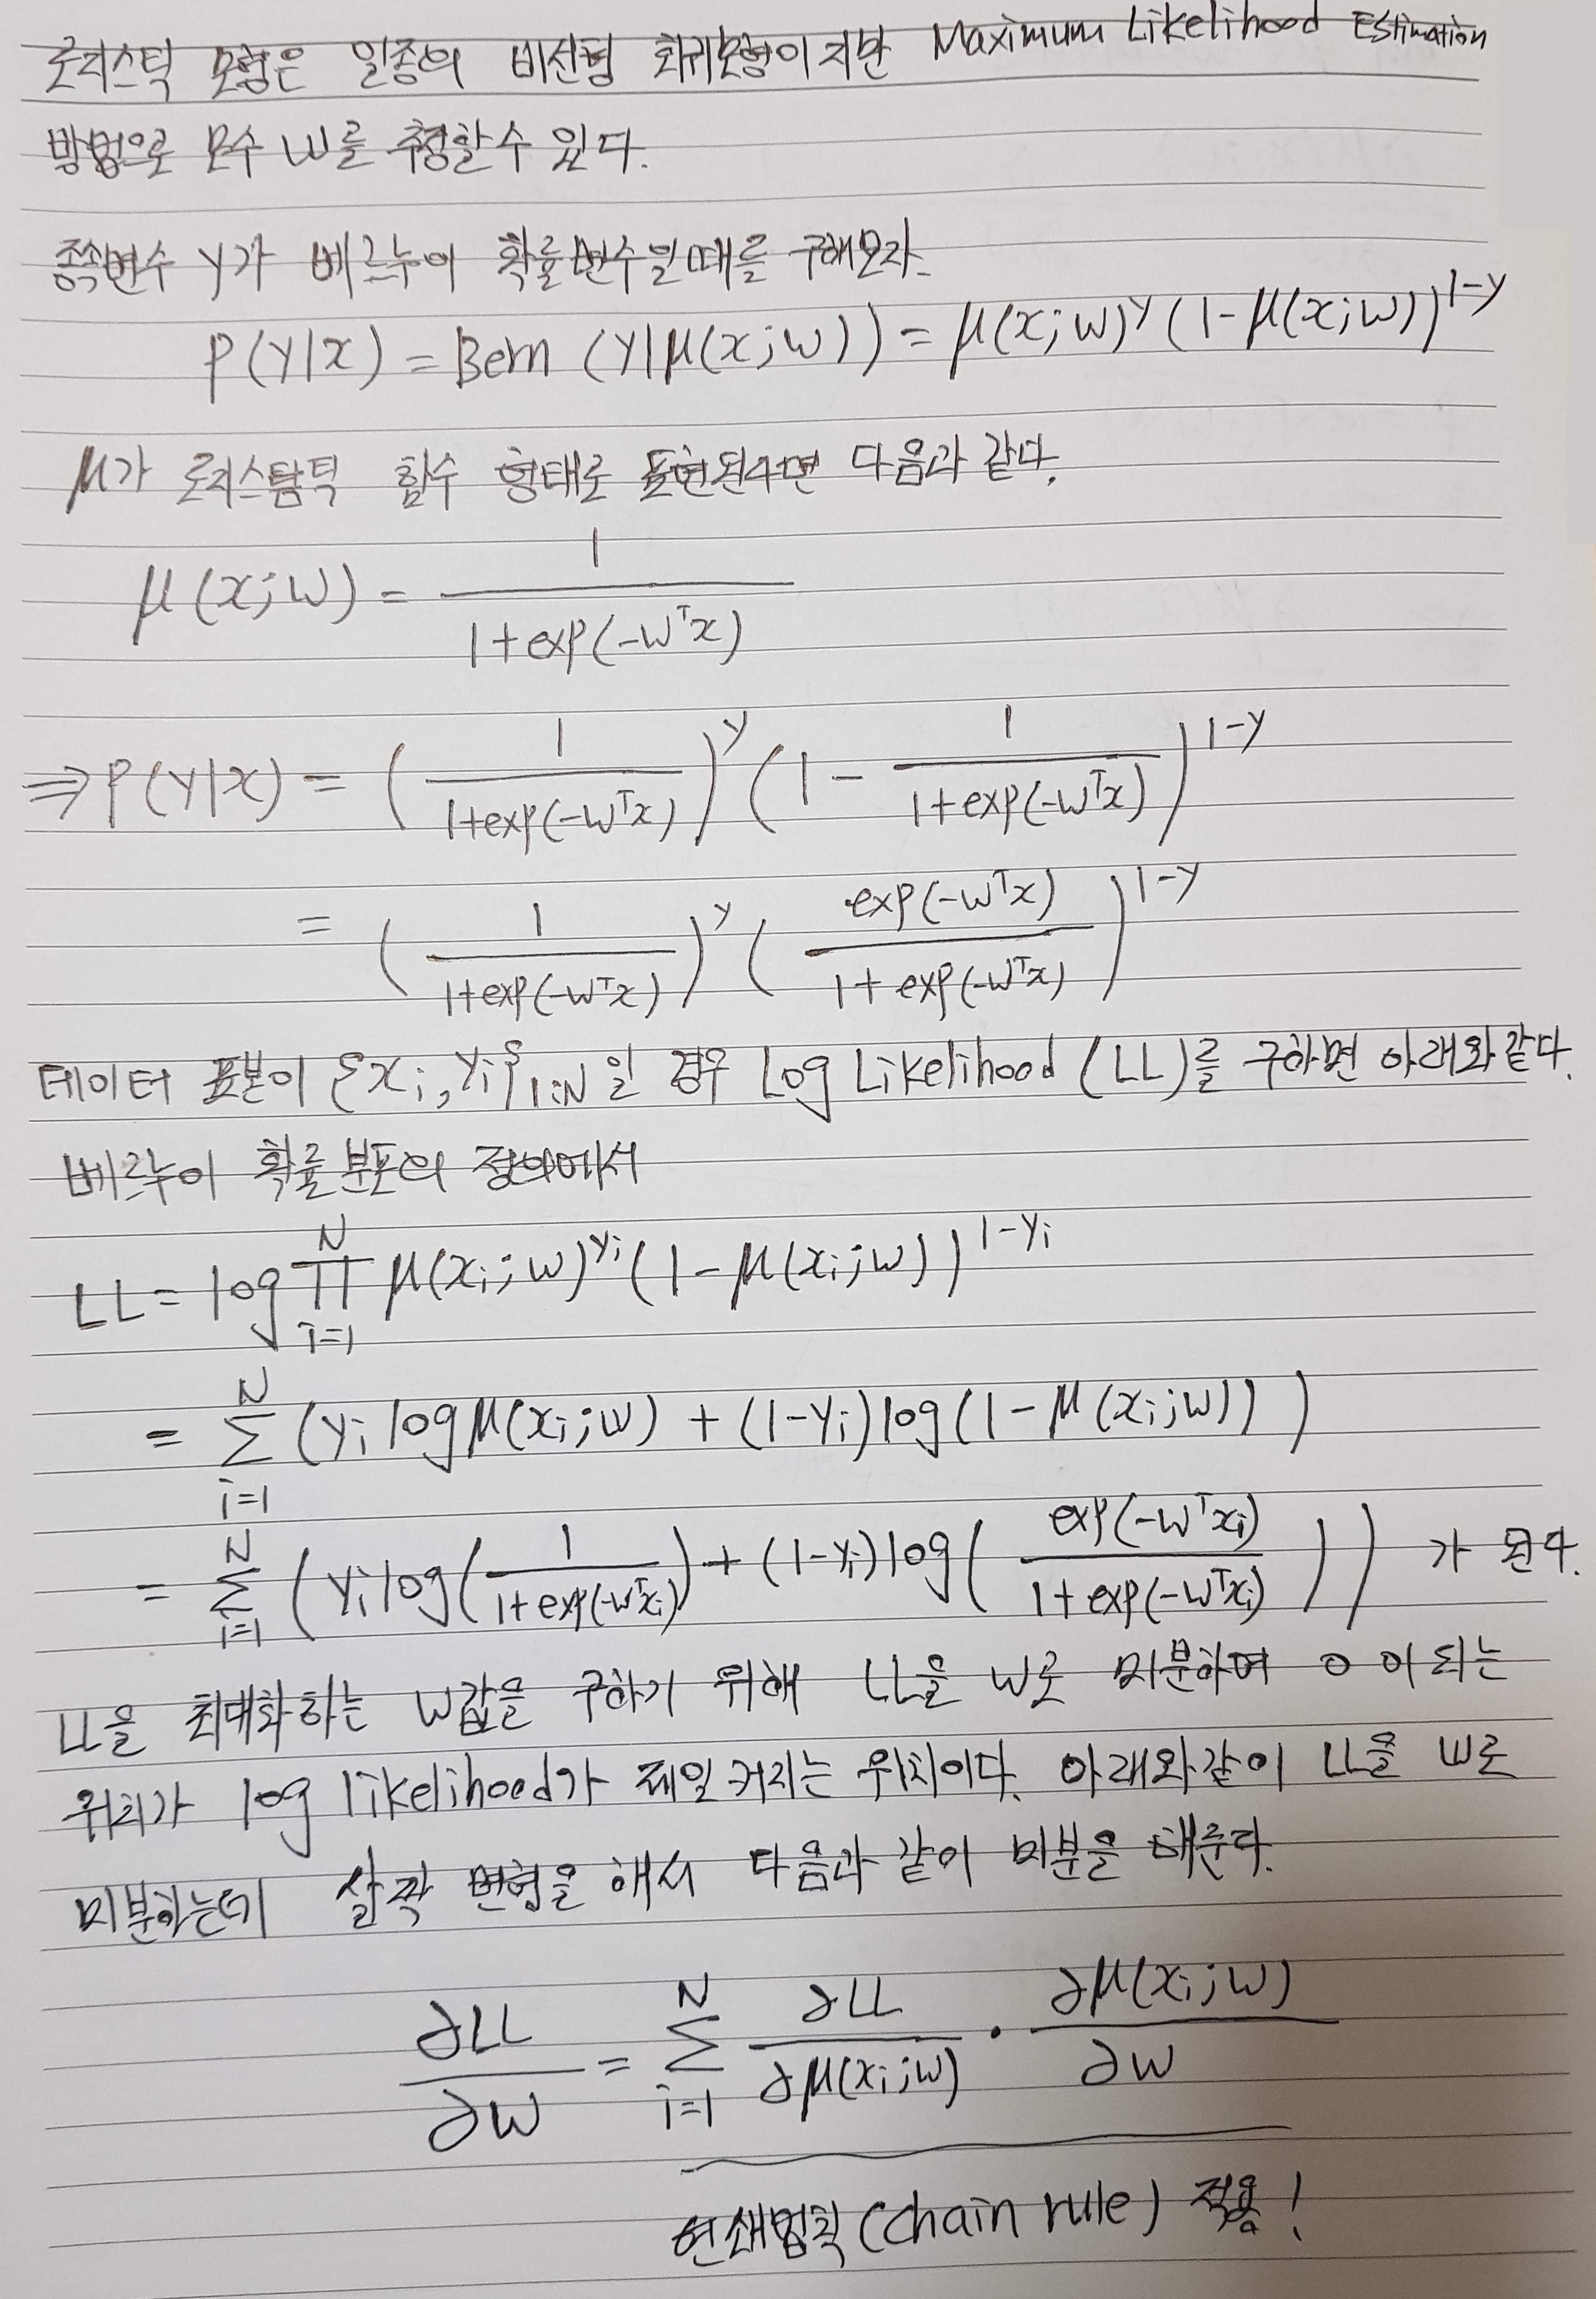 로지스틱 모형은 일종의 비선형 회귀모형이지만 Maximum Likelihood Estimation
방법으로 모수 w를 추정할 수 있다.
종속변수 y가 베르누이 확률변수일때를 구해보자.
P(y|x) = Bern (y|μ(x;w)) = μ(x;w)^y (1-μ(x;w))^{1-y}
μ가 로지스틱 함수 형태로 표현된다면 다음과 같다.
μ(x;w) = \frac{1}{1+exp(-w^T x)}
⇒ P(y|x) = (\frac{1}{1+exp(-w^T x)})^y (1 - \frac{1}{1+exp(-w^T x)})^{1-y}
= (\frac{1}{1+exp(-w^T x)})^y (\frac{exp(-w^T x)}{1+exp(-w^T x)})^{1-y}
데이터 표본이 {x_i, y_i}_{1:N} 일 경우 Log Likelihood (LL)를 구하면 아래와 같다.
베르누이 확률분포의 정의에서
LL = log ∏_{i=1}^{N} μ(x_i;w)^{y_i} (1-μ(x_i;w))^{1-y_i}
= ∑_{i=1}^{N} (y_i log μ(x_i;w) + (1-y_i) log(1-μ(x_i;w)))
= ∑_{i=1}^{N} (y_i log(\frac{1}{1+exp(-w^T x_i)}) + (1-y_i) log(\frac{exp(-w^T x_i)}{1+exp(-w^T x_i)})) 가 된다.
LL을 최대화하는 w값을 구하기 위해 LL을 w로 미분하여 0이 되는
위치가 log likelihood가 제일 커지는 위치이다. 아래와 같이 LL을 w로
미분하는데 살짝 변형을 해서 다음과 같이 미분을 해준다.
\frac{∂LL}{∂w} = ∑_{i=1}^{N} \frac{∂LL}{∂μ(x_i;w)} · \frac{∂μ(x_i;w)}{∂w}
연쇄법칙(chain rule) 적용!